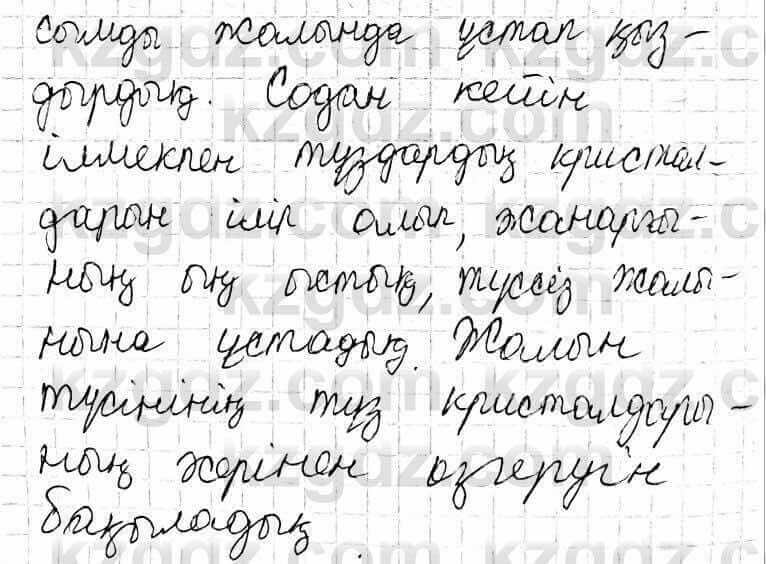 сымды жалында ұстап қыз-
дырдық. Содан кейін
ілмекпен тұздардың кристал-
дарын іліп алып, жанарғы-
ның ең ыстық, түссіз жалы-
нына ұстадық. Жалын
түсінінің тұз кристалдары-
ның әсерінен өзгеруін
бақыладық